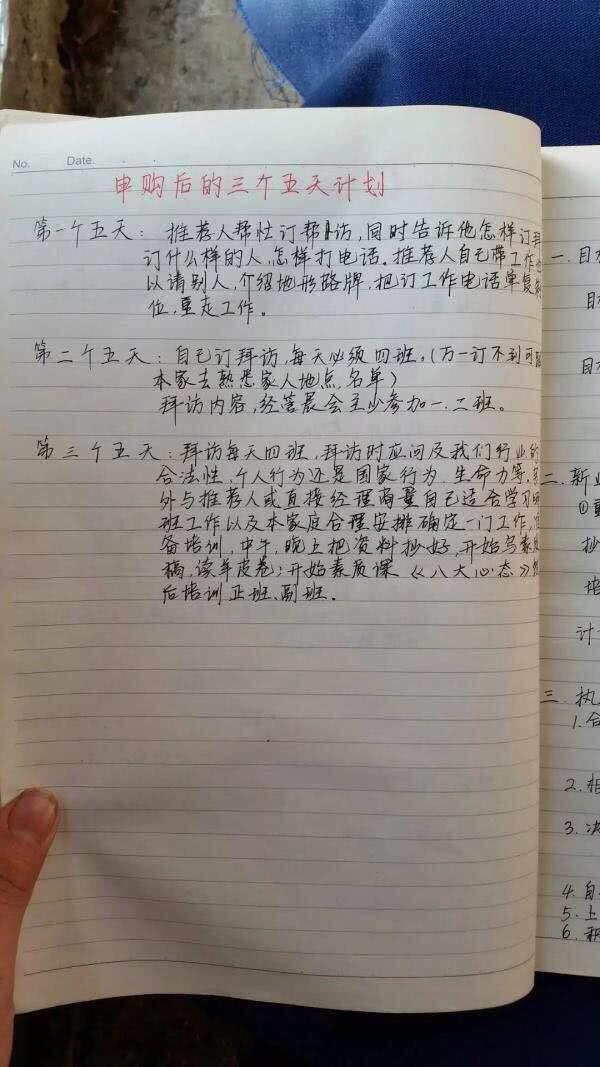 No. Date.
申购后的三个五天计划
第一个五天: 推荐人帮忙订帮访,同时告诉他怎样订拜
订什么样的人,怎样打电话。推荐人自己带工作也
以请别人,介绍地形路牌,把订工作电话单复
位,重走工作。
第二个五天: 自己订拜访,每天必须四班。(万一订不到可
本家去熟悉家人地点,名单)
拜访内容,经管晨会至少参加一、二班。
第三个五天: 拜访每天四班,拜访时应问及我们行业的
合法性,个人行为还是国家行为,生命力等,另
外与推荐人或直接经理商量自己适合学习
班工作以及本家庭合理安排确定一门工作,
备培训,中午,晚上把资料抄好,开始写素质
稿,读羊皮卷;开始素质课《八大心态》
后培训正班、副班。
一. 目
目
目
二. 新业
①
抄
培
计
三. 执
1. 合
2. 相
3. 决
4. 自
5. 上
6.